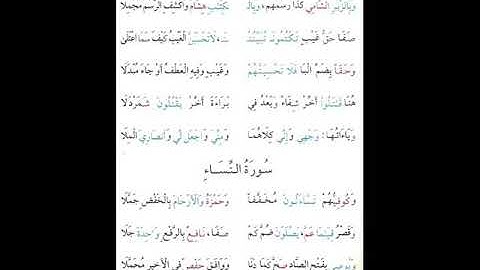 وَبِالزُّبُرِ الشَّامِي كَذَا رَسْمُهُمْ، وَبِالْـ ـكِتَٰبِ هِشَامٌ وَاكْشِفِ الرَّسْمَ مُجْمِلَا
صَفَا حَقُّ غَيْبٍ تَكْتُمُونَ تُبَيِّنُنْـ ـنَ، لَا تَحْسَبَنَّ الْغَيْبُ كَيْفَ سَمَا اعْتَلَى
وَحَقًّا بِضَمِّ الْبَا فَلَا تَحْسِبَنَّهُمْ وَغَيْبٍ وَفِيهِ الْعَطْفُ أَوْ جَاءَ مُبْدَلَا
هُنَا قَٰتَلُوا أَخِّرْ شِفَاءً وَبَعْدُ فِي بَرَاءَةَ أَخِّرْ يَقْتُلُونَ شَمَرْدَلَا
وَيَاءَاتُهَا: وَجْهِي وَإِنِّي كِلَاهُمَا وَمِنِّي وَاجْعَل لِّي وَأَنصَارِي الْمِلَا
سُورَةُ النِّسَاءِ
وَكُوفِيُّهُمْ تَسَاءَلُونَ مُخَفَّفًا وَحَمْزَةُ وَالْأَرْحَامِ بِالْخَفْضِ جَمَّلَا
وَقَصْرُ قِيَٰمًا عَمَّ، يَصْلَوْنَ ضُمَّ كَمْ صَفَا، نَافِعٌ بِالرَّفْعِ وَاحِدَةٌ جَلَا
وَيُوصَىٰ بِفَتْحِ الصَّادِ صَحَّ كَمَا دَنَا وَوَافَقَ حَفْصٌ فِي الْأَخِيرِ مُجَمَّلَا